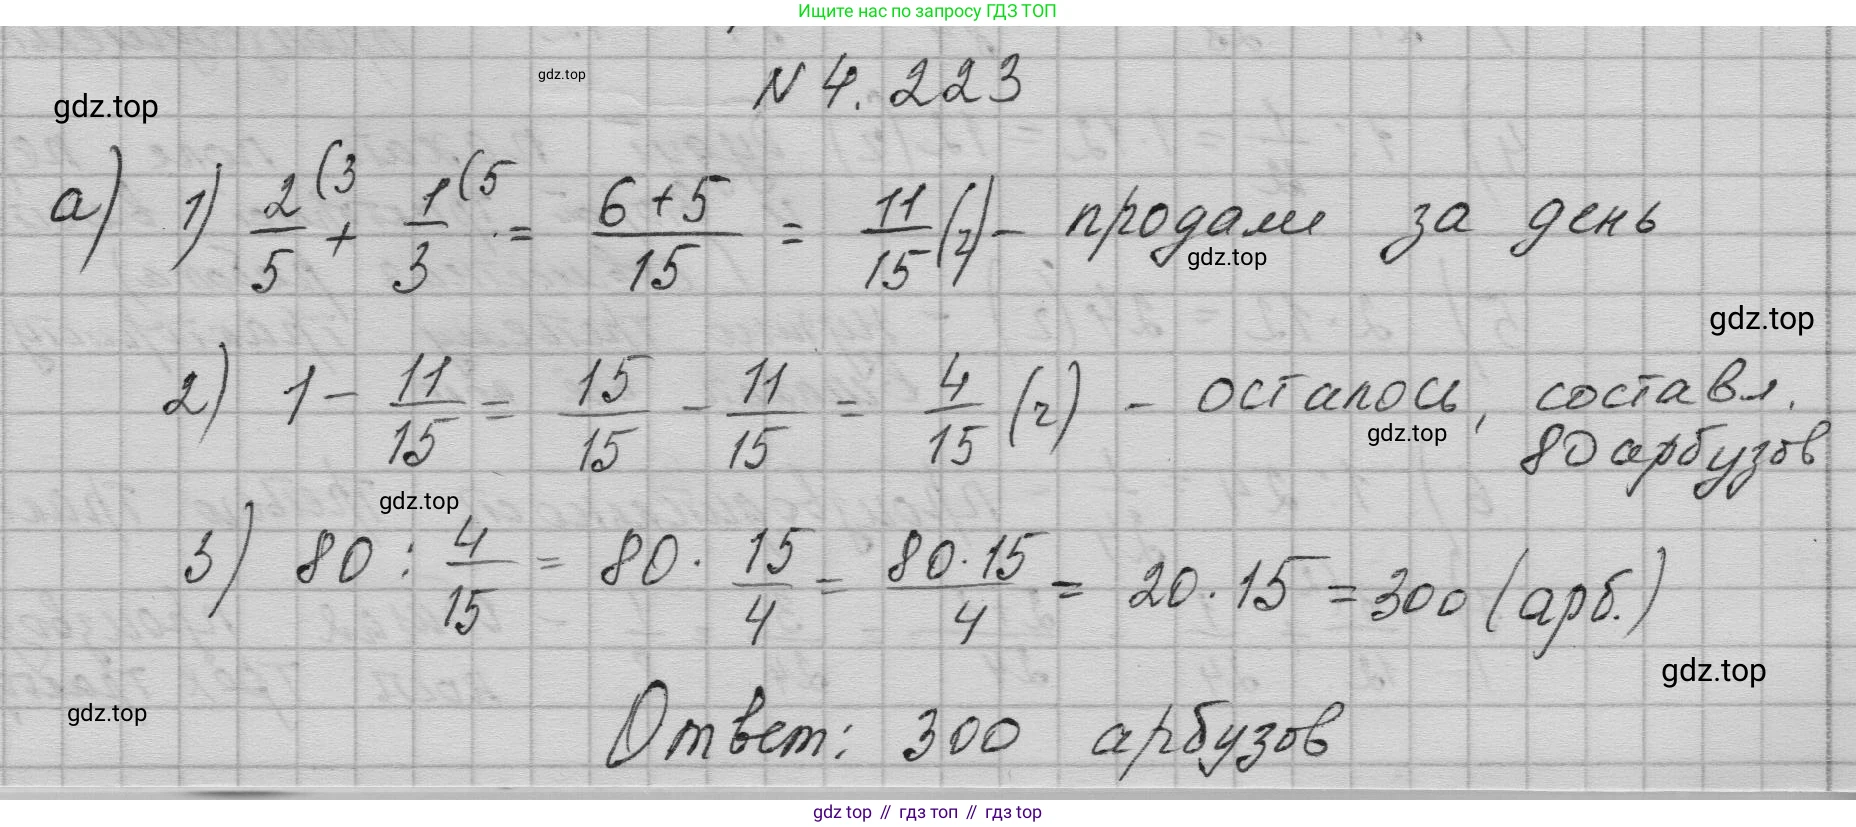 Ищите нас по запросу ГДЗ ТОП
N 4.223
gdz.top
gdz.top
а) 1) 2/5 (3 + 1/3 (5 = (6+5)/15 = 11/15 (ч) - продали за день
gdz.top
gdz.top
2) 1 - 11/15 = 15/15 - 11/15 = 4/15 (ч) - осталось, составл.
80 арбузов
gdz.top
gdz.top
3) 80 : 4/15 = 80 · 15/4 = (80·15)/4 = 20·15 = 300 (арб.)
gdz.top
gdz.top
Ответ: 300 арбузов
gdz top // гдз топ // гдз top